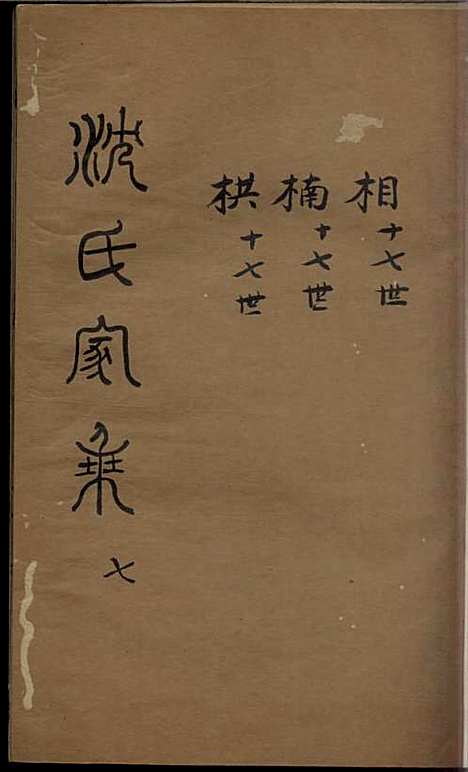 相十七世
楠十七世
栱十七世
沈氏家乘 七